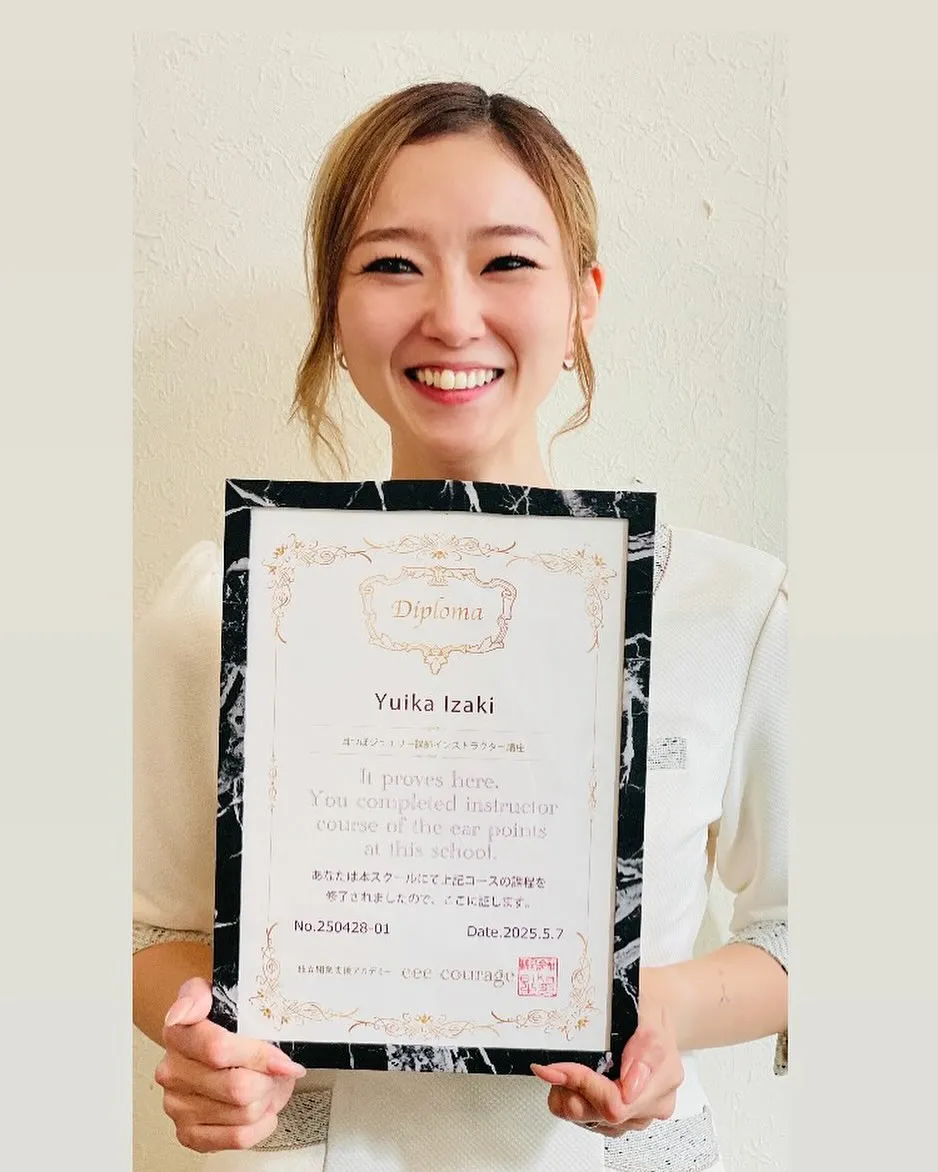 Diploma
Yuika Izaki
耳つぼジュエリー講師インストラクター講座
It proves here.
You completed instructor
course of the ear points
at this school.
あなたは本スクールにて上記コースの課程を
修了されましたので、ここに証します。
No.250428-01
Date.2025.5.7
独立開業支援アカデミー cee courage